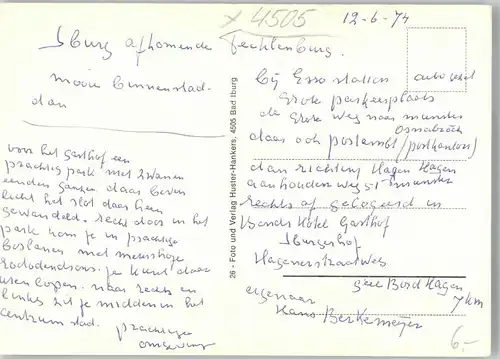 x 4505
12-6-74
Iburg afkomende Tecklenburg.
mooie binnenstad.
dan
voor het gasthof een
prachtig park met zwanen
eenden ganzen daar boven
licht het slot daar heen
gewandeld. recht door in het
park kom je in prachtige
boslanen met
rododendrons. je kunt daar
uren lopen. naar rechts en
links zit je midden in het
centrum stad. prachtige
omgeving
26 - Foto und Verlag Huster-Hankers, 4505 Bad Iburg
bij Esso station
grote parkeerplaats
de grote weg naar munster
Osnabrück
daar ook postamt (postkantoor)
dan richting Hagen Hagen
aanhouden weg 51 munster
rechts af gelogeerd in
Hotel Gasthof
Iburgerhof
Hagenerstraat
Bad Hagen
7 km
eigenaar
Hans Berkemeyer
6.-